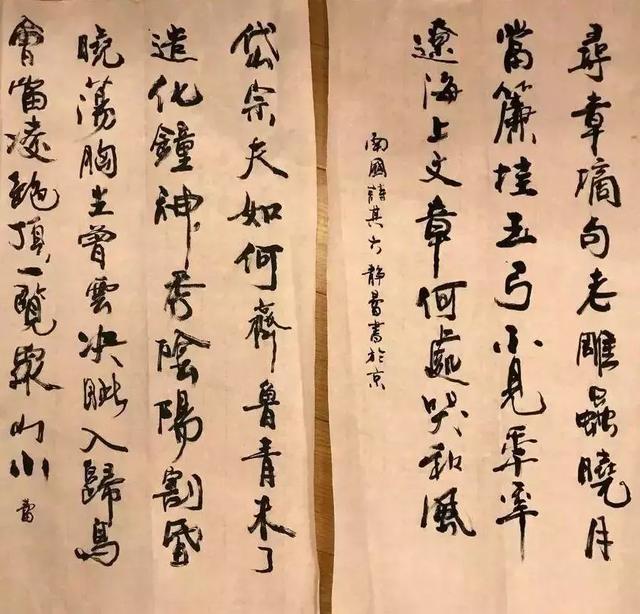 尋章摘句老雕蟲曉月
當簾挂玉弓不見年年
遼海上文章何處哭秋風
南國詩其六 靜曼書於京
岱宗夫如何齊魯青未了
造化鐘神秀陰陽割昏
曉蕩胸生曾雲决眦入歸鳥
會當凌絕頂一覽眾山小